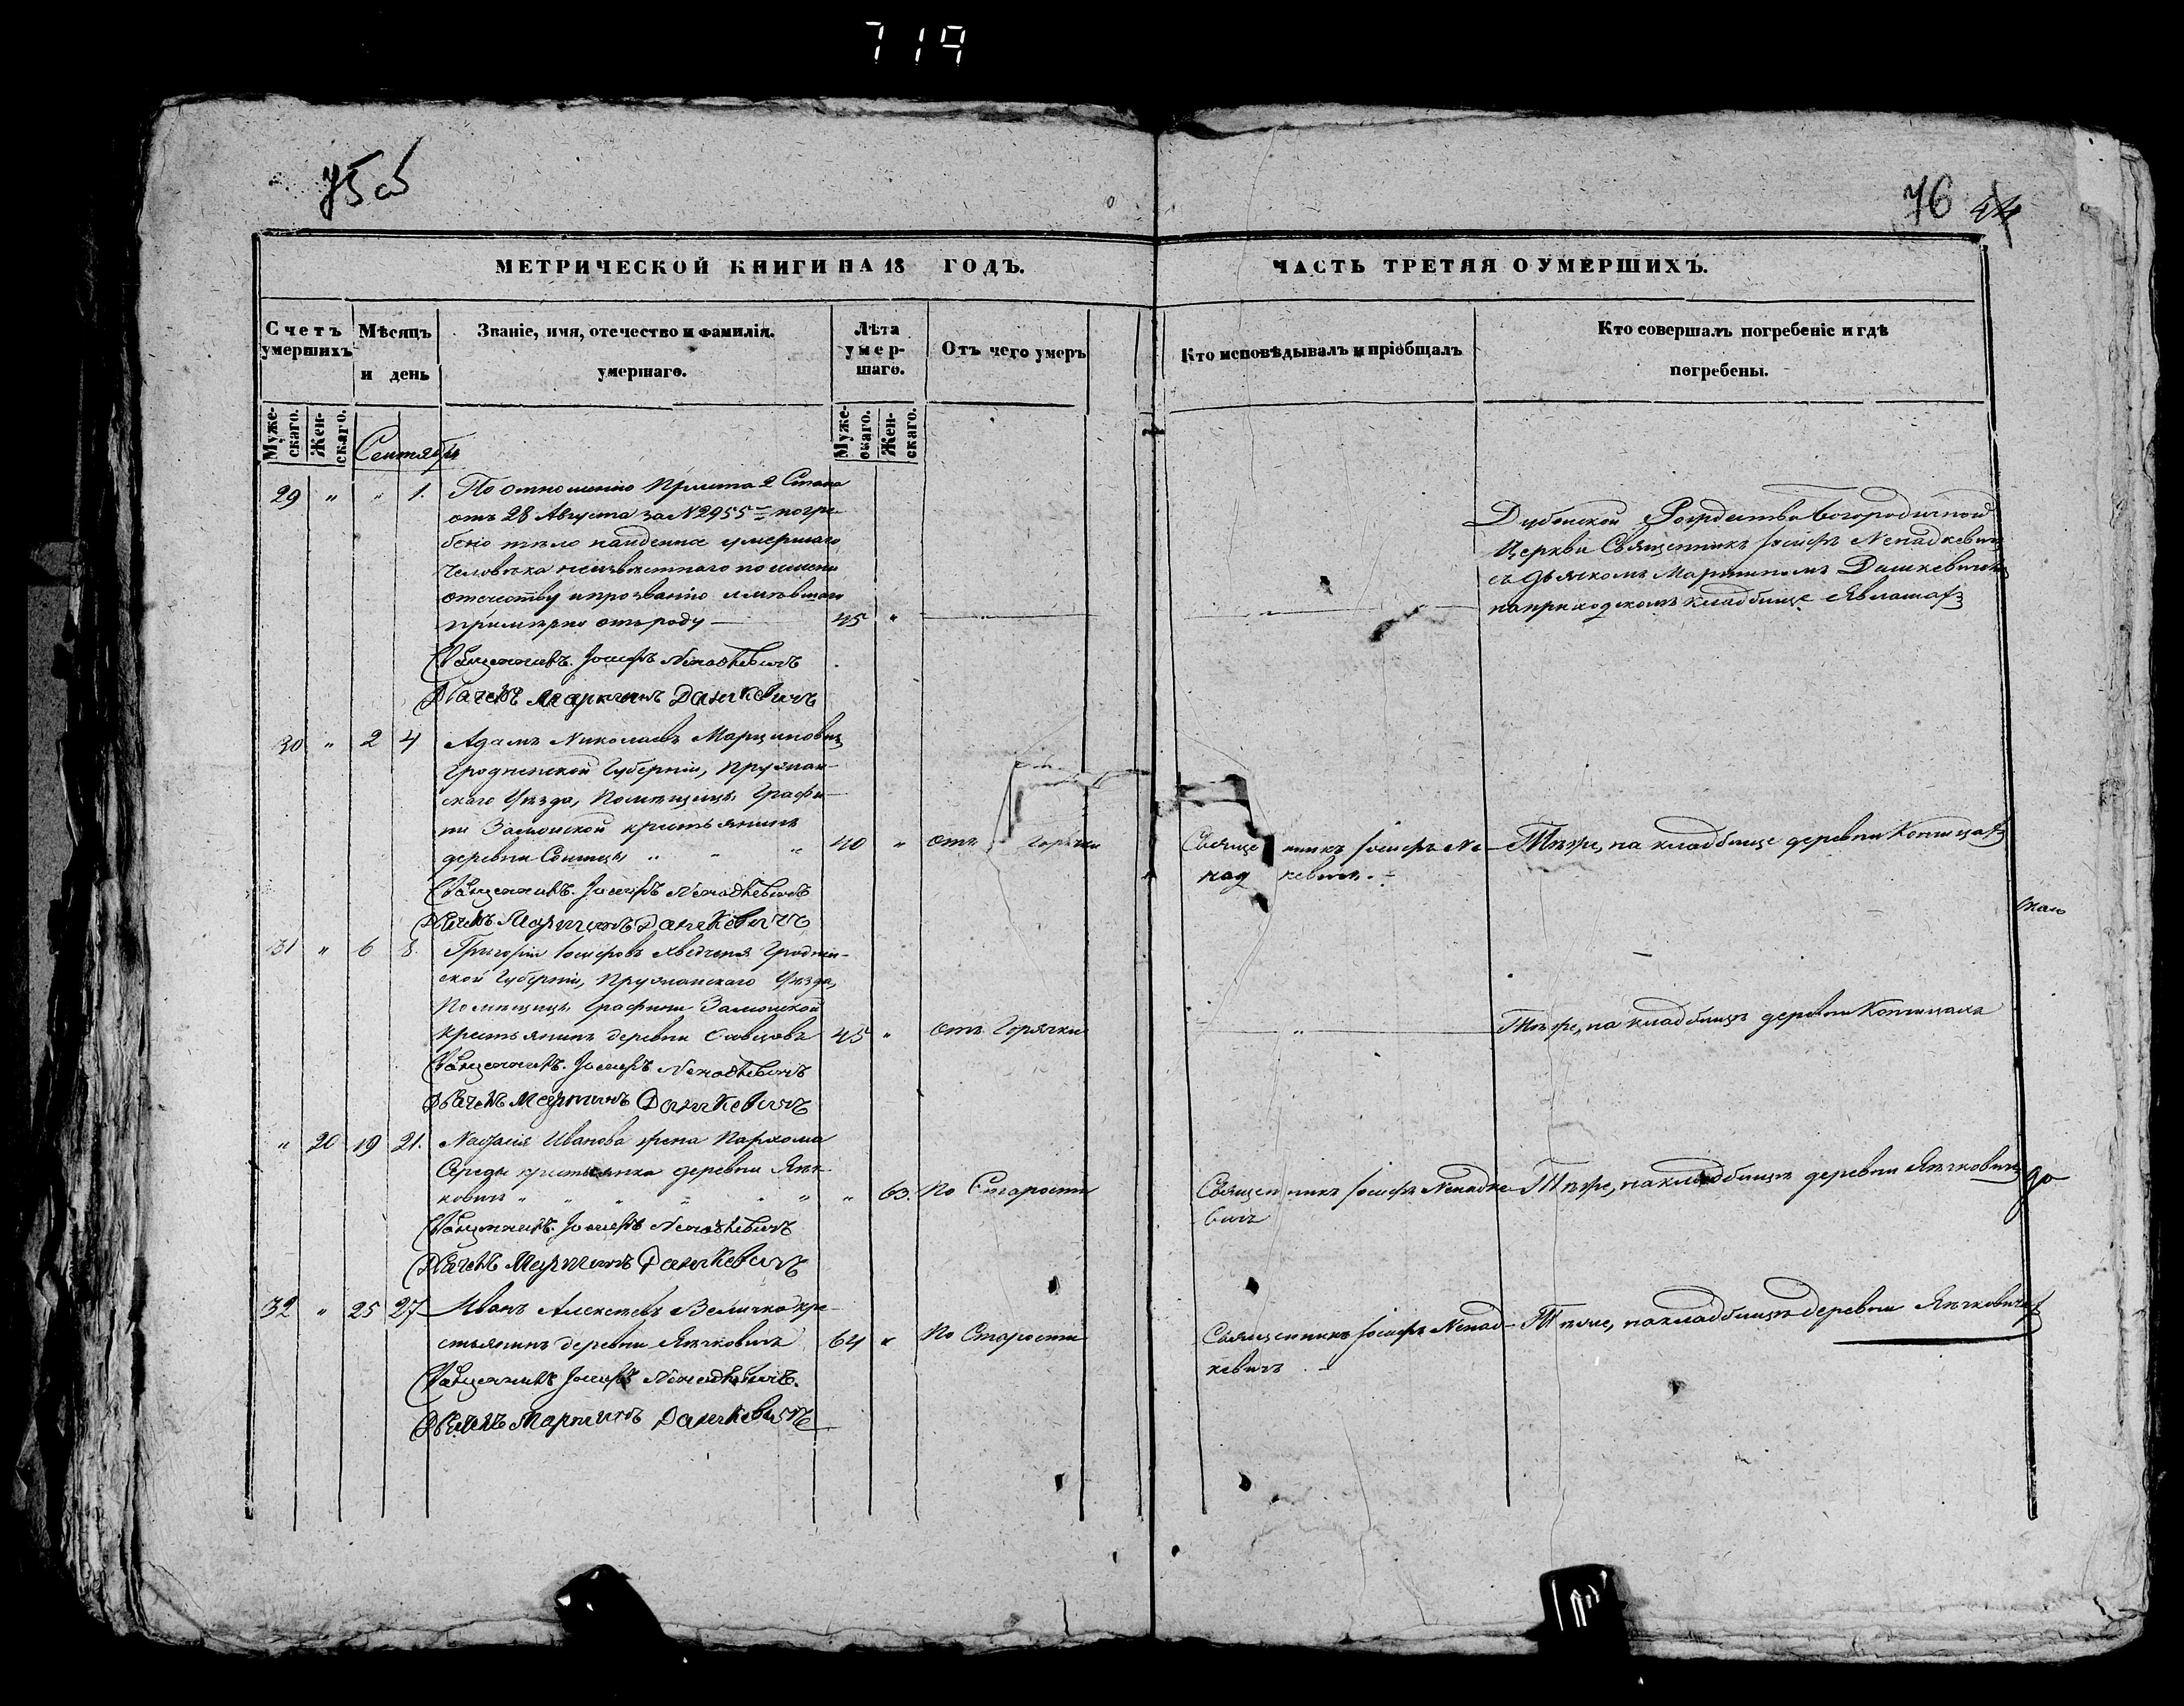 719
75 об
76 44
МЕТРИЧЕСКОЙ КНИГИ НА 18 ГОДЪ.
ЧАСТЬ ТРЕТЯЯ О УМЕРШИХЪ.
Счетъ умершихъ
Мѣсяцъ и день
Званіе, имя, отечество и фамилія. умершаго.
Лѣта умер-шаго.
Отъ чего умеръ
Кто исповѣдывалъ и пріобщалъ
Кто совершалъ погребеніе и гдѣ погребены.
Муже-скаго.
Жен-скаго.
Муже-скаго.
Жен-скаго.
Сентябрь
29 " " 1. По отношенію 2 Стана
отъ 28 Августа за N 2955 = погре-
бено тѣло умершаго
человѣка неизвѣстнаго по имени
отечеству и прозванію имѣвшаго
примѣрно отъ роду 45 "
Священникъ Іосифъ Ненадкевичъ
Дьячекъ Мартинъ Дашкевичъ
Рождество Богородичной
Церкви Священникъ Іосифъ Ненадкевичъ
съ дьячкомъ Мартиномъ Дашкевичемъ
на приходскомъ кладбище
30 " 2 4 Адамъ Николаевъ Марциновичъ
Гродненской Губерніи, Пружан-
скаго Уѣзда, Помѣщицы Графи-
ни Замойской крестьянинъ
деревни " " " 40 " отъ горячки
Священникъ Іосифъ Не-
надкевичъ.
Тѣтже, на кладбище деревни
Священникъ Іосифъ Ненадкевичъ
Дьячекъ Мартинъ Дашкевичъ
31 " 6 8. Григорій Іосифовъ Гроднен-
ской Губерніи, Пружанскаго Уѣзда,
Помѣщицы Графини Замойской
крестьянинъ деревни 45 " отъ Горячки
"
Тѣтже, на кладбищѣ деревни
Священникъ Іосифъ Ненадкевичъ
Дьячекъ Мартинъ Дашкевичъ
" 20 19 21. Настасія Иванова жена Пархома
Середы крестьянка деревни Яч-
ковичъ " " " " " " " 63. По Старости
Священникъ Іосифъ Ненадке-
вичъ
Тѣтже, на кладбищѣ деревни
Священникъ Іосифъ Ненадкевичъ
Дьячекъ Мартинъ Дашкевичъ
32 " 25 27 Иванъ Алексѣевъ Величко кре-
стьянинъ деревни 64 " По Старости
Священникъ Іосифъ Ненад-
кевичъ.
Тѣтже, на кладбищѣ деревни
Священникъ Іосифъ Ненадкевичъ.
Дьячекъ Мартинъ Дашкевичъ